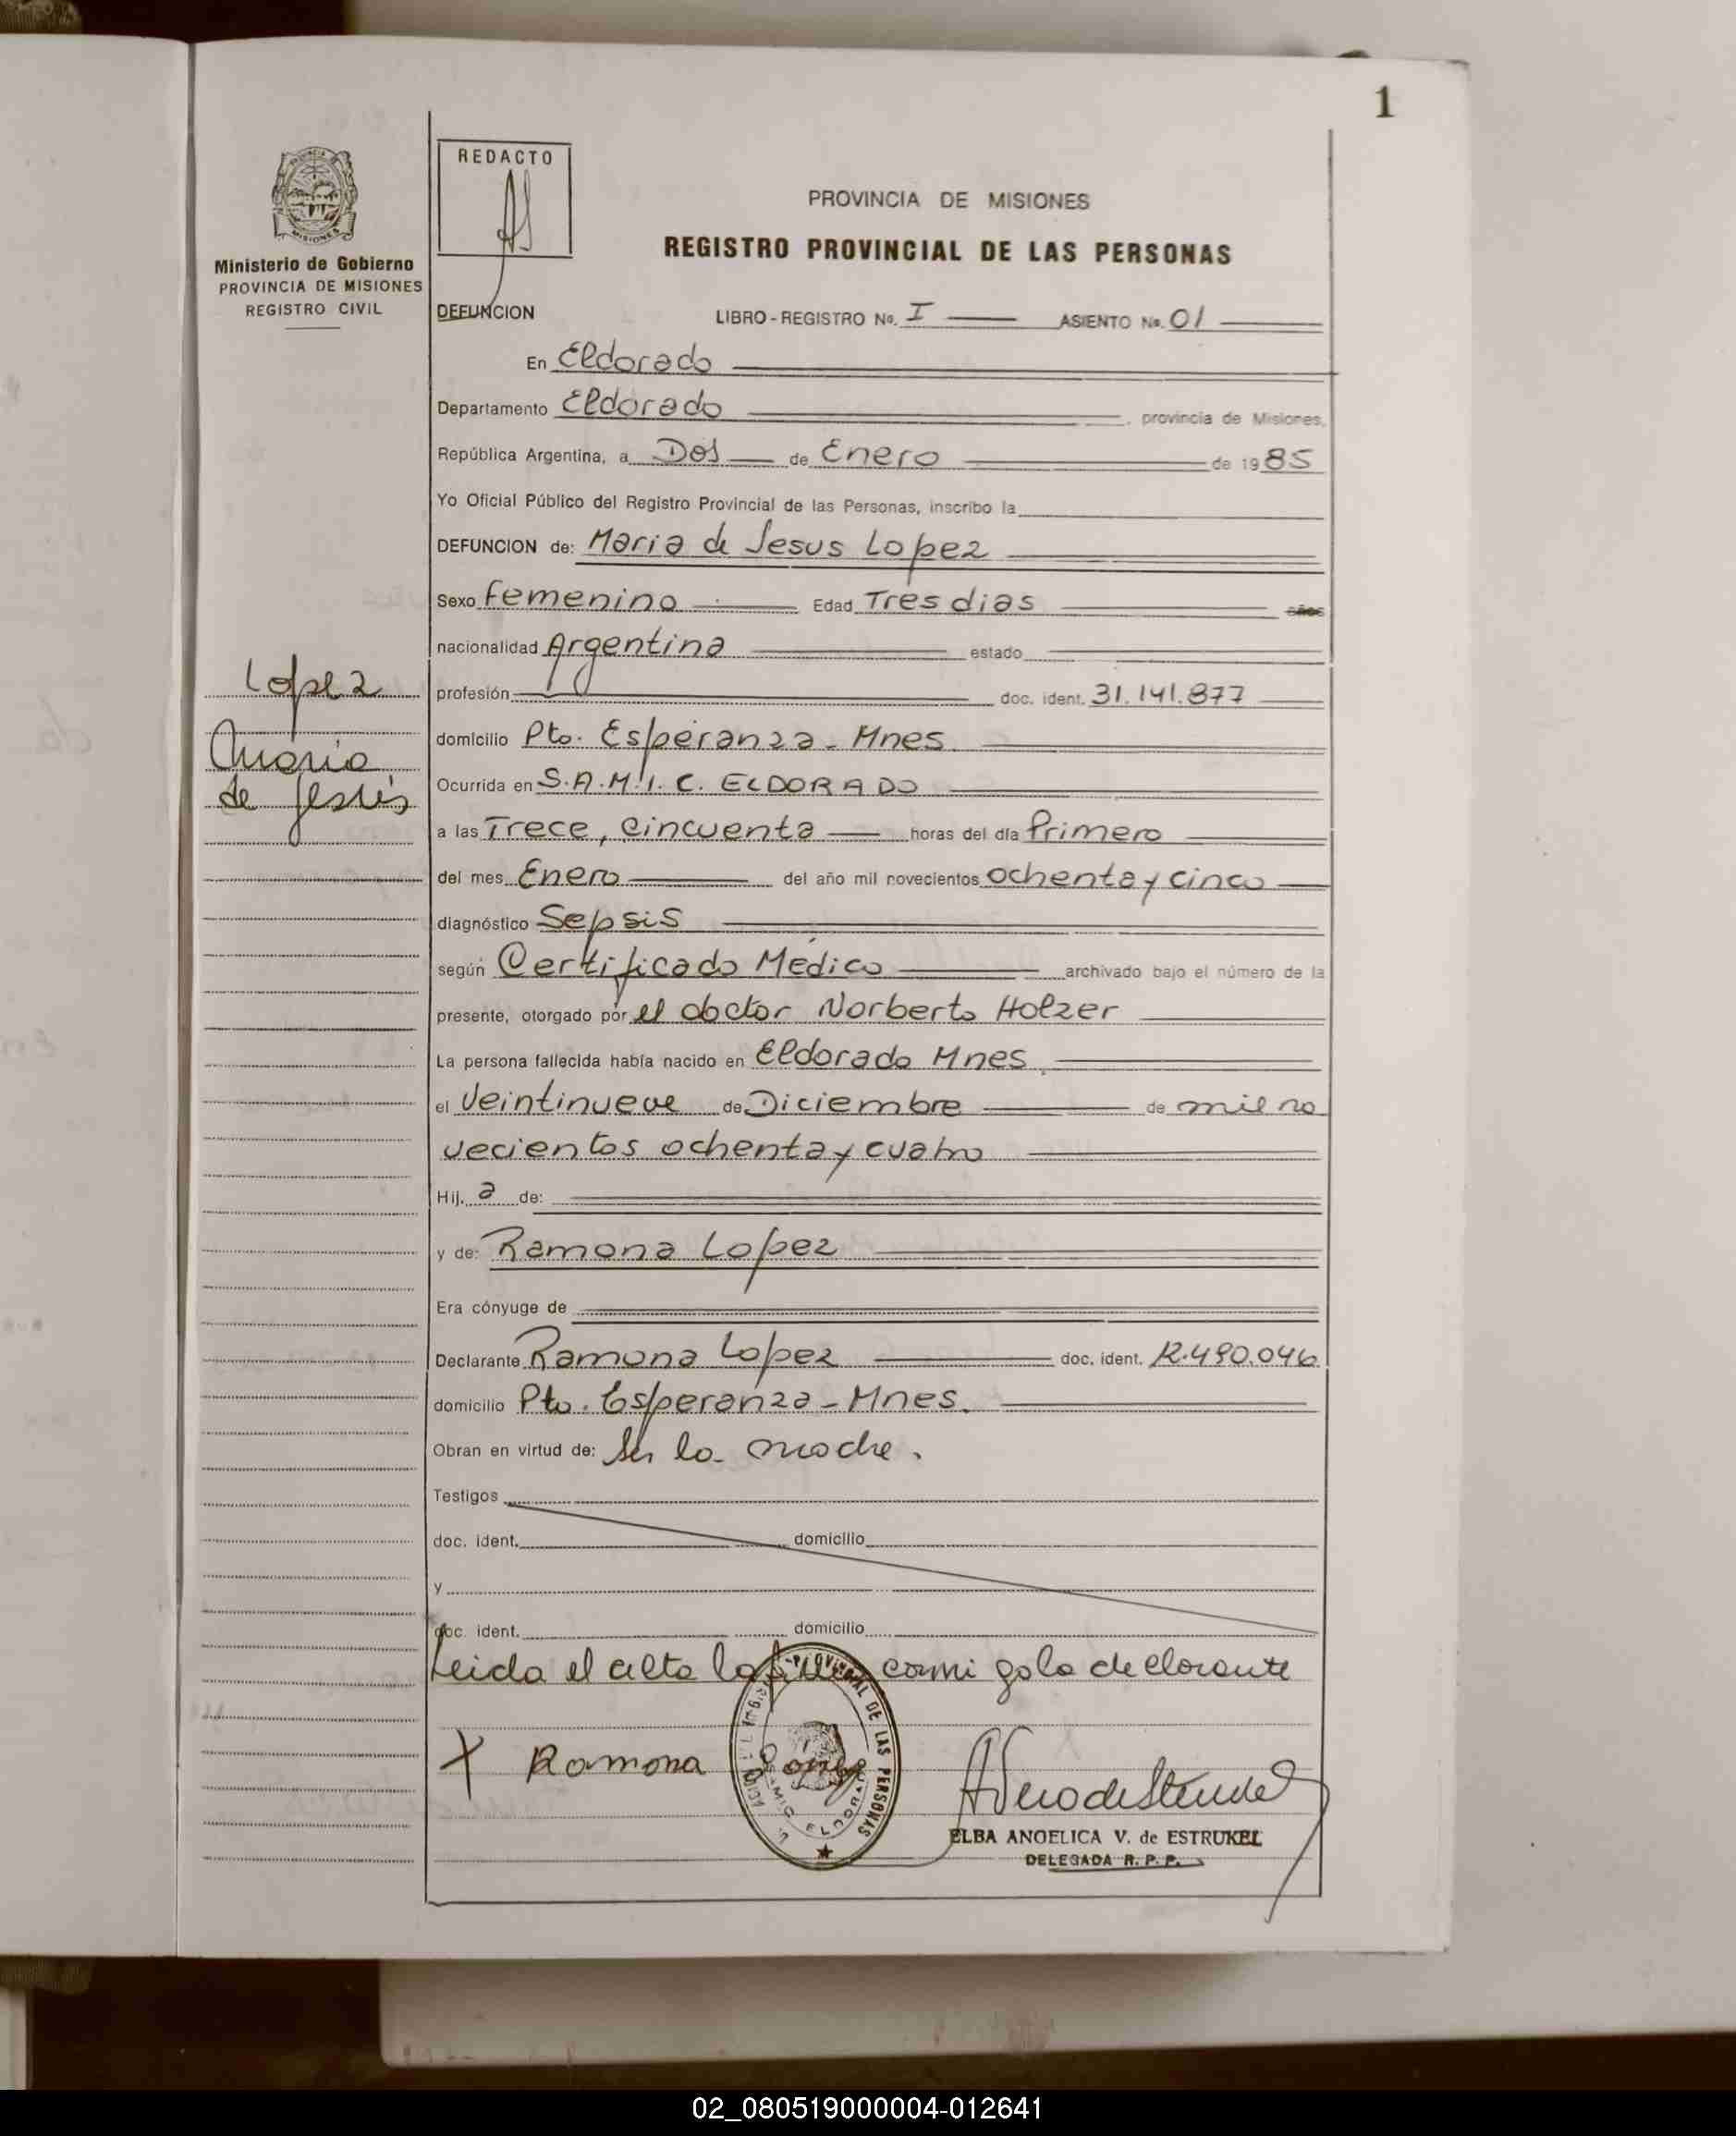 1
REDACTO
PROVINCIA DE MISIONES
REGISTRO PROVINCIAL DE LAS PERSONAS
MISIONES
Ministerio de Gobierno
PROVINCIA DE MISIONES
REGISTRO CIVIL
DEFUNCION LIBRO-REGISTRO No. I ASIENTO No. 01
En Eldorado
Departamento Eldorado, provincia de Misiones,
República Argentina, a Dos de Enero de 1985
Yo Oficial Público del Registro Provincial de las Personas, inscribo la
DEFUNCION de: Maria de Jesus Lopez
Sexo Femenino Edad Tres dias años
nacionalidad Argentina estado
Lopez
Maria
de Jesús
profesión doc. ident. 31.141.877
domicilio Pto. Esperanza - Mnes.
Ocurrida en S.A.M.I.C. ELDORADO
a las Trece, Cincuenta horas del día Primero
del mes Enero del año mil novecientos ochenta y cinco
diagnóstico Sepsis
según Certificado Médico archivado bajo el número de la
presente, otorgado por el doctor Norberto Holzer
La persona fallecida había nacido en Eldorado Mnes.
el Veintinueve de Diciembre de mil no
vecientos ochenta y cuatro
Hij. a de:
y de: Ramona Lopez
Era cónyuge de
Declarante Ramona Lopez doc. ident. 12.490.046
domicilio Pto. Esperanza - Mnes.
Obran en virtud de: Ser la madre.
Testigos
doc. ident. domicilio
y
doc. ident. domicilio
Leida el acta la firma conmigo la declarante
X Ramona Lopez
PROVINCIAL DE LAS PERSONAS
ELDORADO
ELBA ANGELICA V. de ESTRUKEL
DELEGADA R. P. P.
02_080519000004-012641